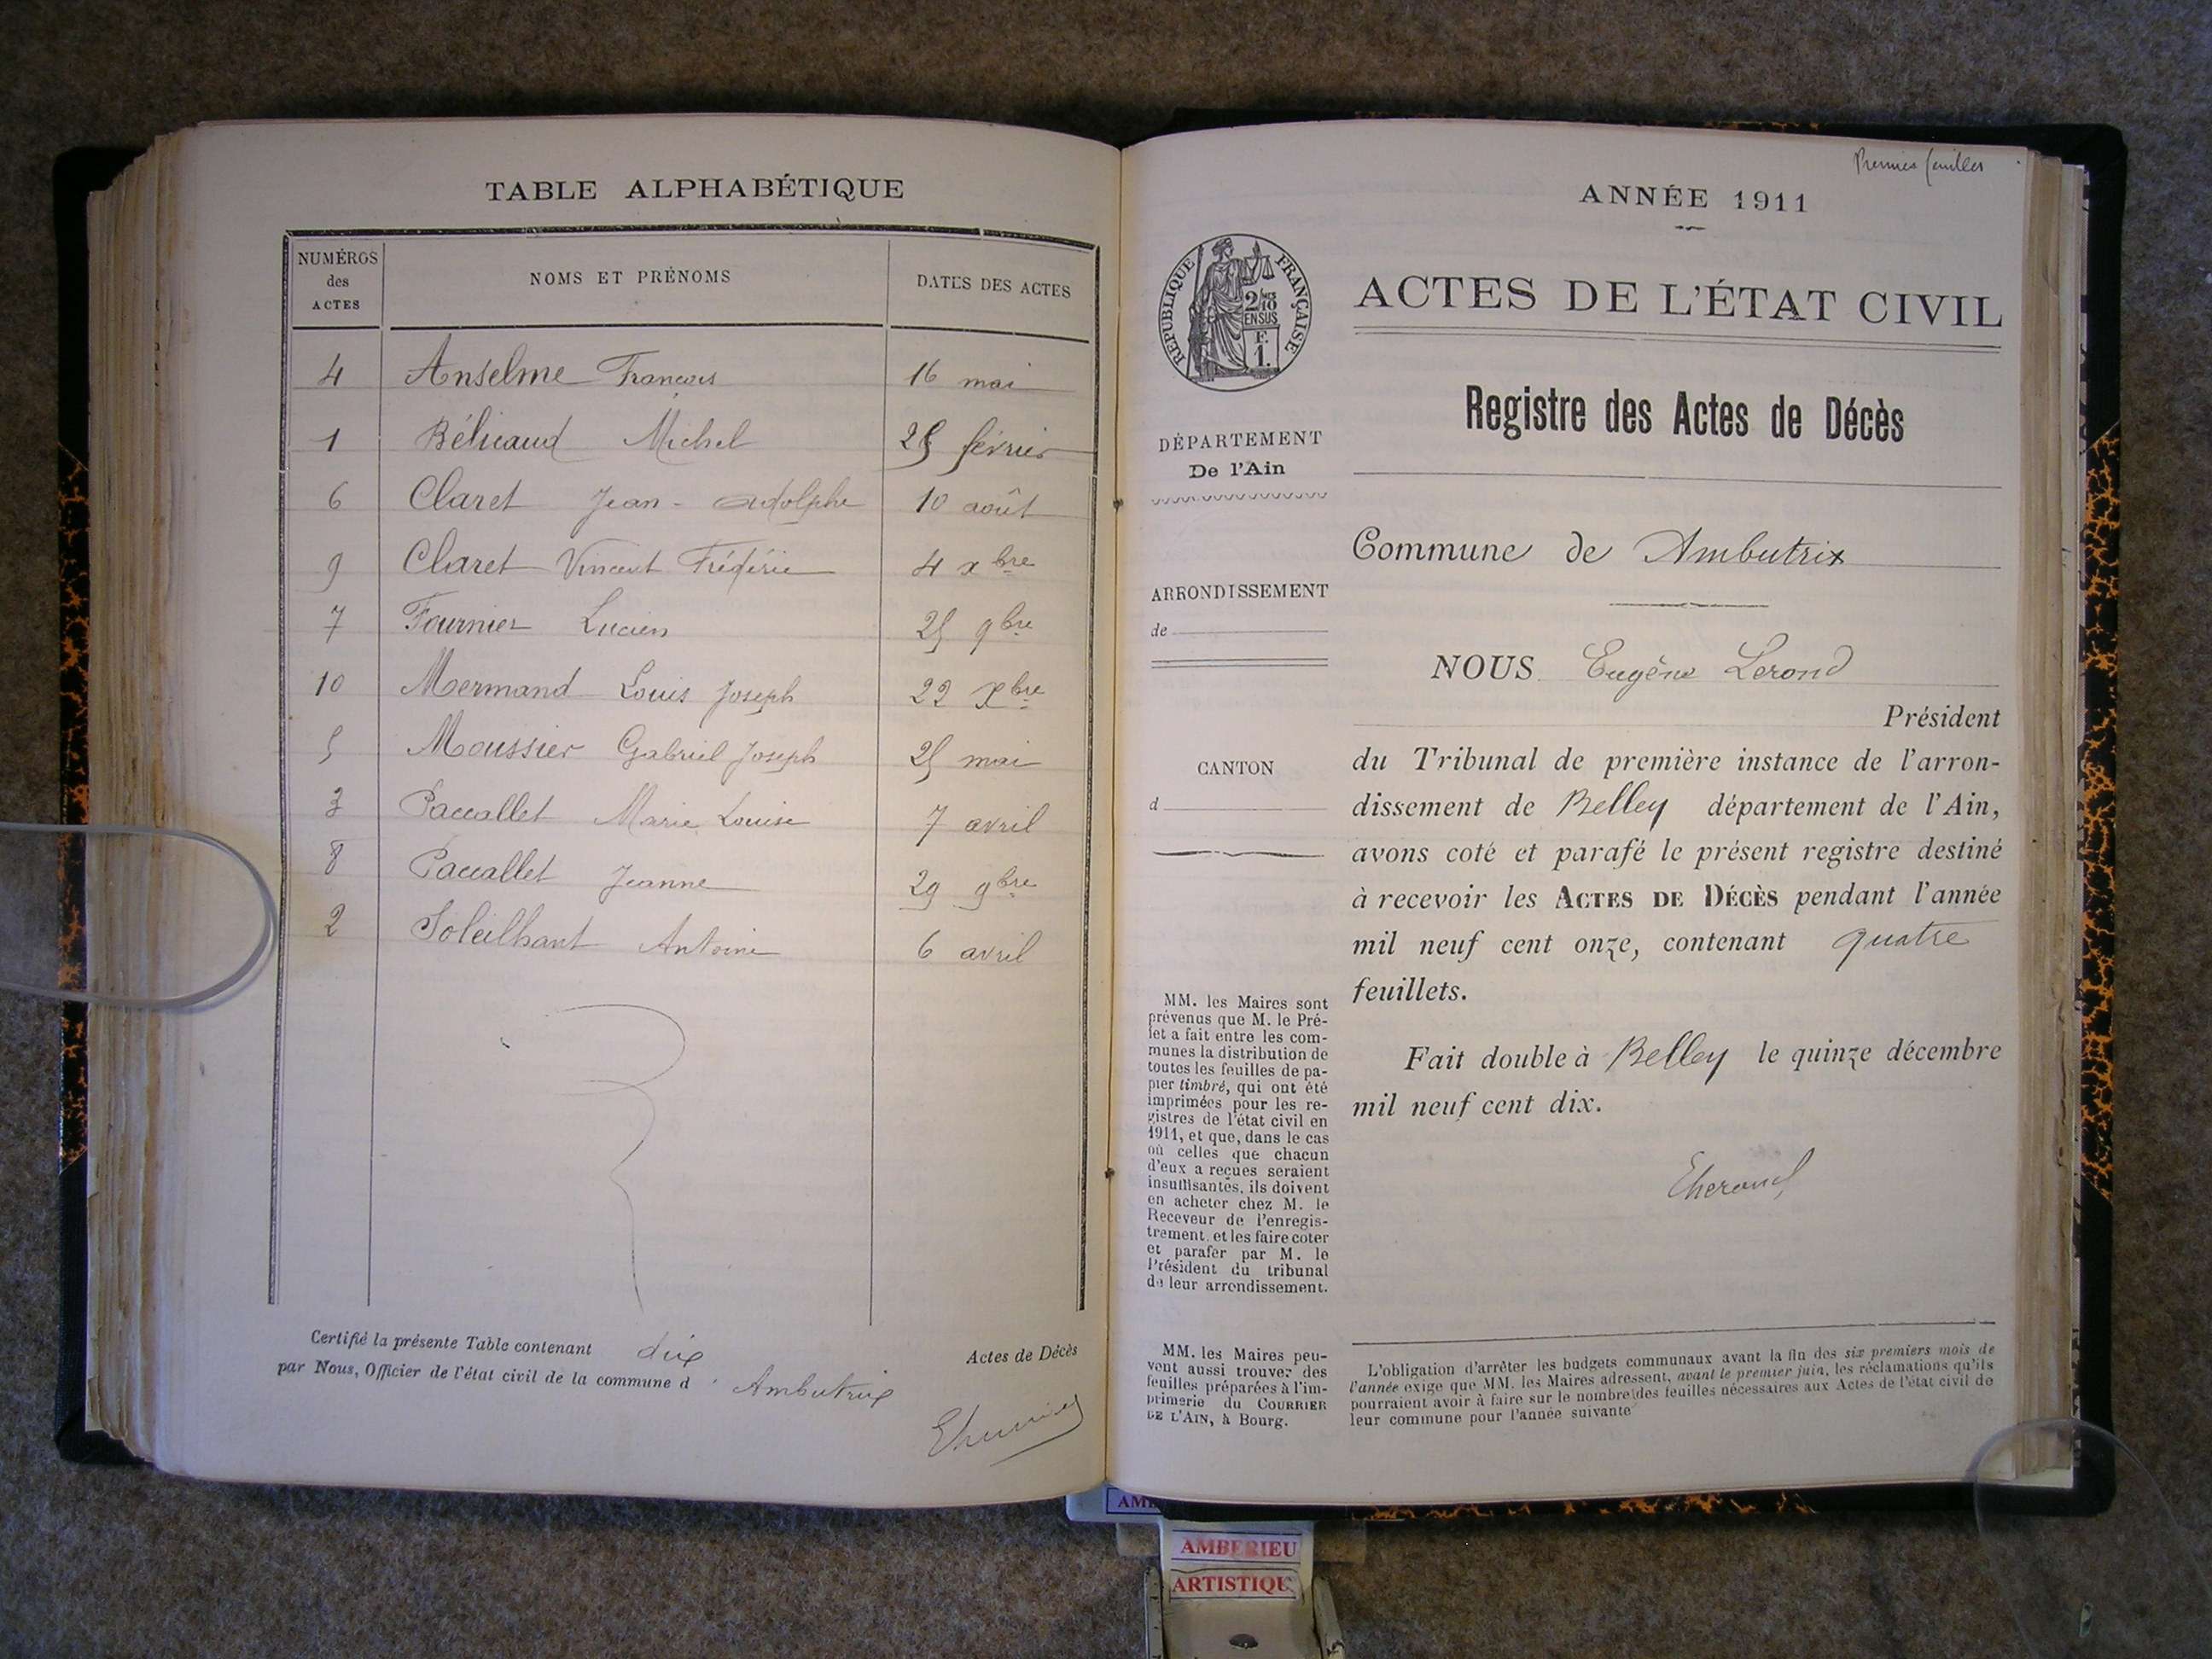 TABLE ALPHABÉTIQUE
NUMÉROS
des
ACTES
NOMS ET PRÉNOMS
DATES DES ACTES
4 Anselme François 16 mai
1 Michel 25 février
6 Claret Jean-Adolphe 10 août
9 Claret Vincent Frédéric 4 xbre
7 Fournier Lucien 25 9bre
10 Mermand Louis Joseph 22 Xbre
5 Moussier Gabriel Joseph 25 mai
3 Paccallet Marie Louise 7 avril
8 Paccallet Jeanne 29 9bre
2 Soleilhant Antoine 6 avril
Certifié la présente Table contenant dix Actes de Décès
par Nous, Officier de l'état civil de la commune d'Ambutrix
Premier feuillet
ANNÉE 1911
RÉPUBLIQUE FRANÇAISE
2/10 EN SUS
F.
1.
ACTES DE L'ÉTAT CIVIL
Registre des Actes de Décès
DÉPARTEMENT
De l'Ain
Commune de Ambutrix
ARRONDISSEMENT
de
NOUS Eugène Lerond
Président
du Tribunal de première instance de l'arron-
CANTON
d
dissement de Belley département de l'Ain,
avons coté et parafé le présent registre destiné
à recevoir les ACTES DE DÉCÈS pendant l'année
mil neuf cent onze, contenant quatre
feuillets.
Fait double à Belley le quinze décembre
mil neuf cent dix.
MM. les Maires sont
prévenus que M. le Pré-
fet a fait entre les com-
munes la distribution de
toutes les feuilles de pa-
pier timbré, qui ont été
imprimées pour les re-
gistres de l'état civil en
1911, et que, dans le cas
où celles que chacun
d'eux a reçues seraient
insuffisantes, ils doivent
en acheter chez M. le
Receveur de l'enregis-
trement, et les faire coter
et parafer par M. le
Président du tribunal
de leur arrondissement.
MM. les Maires peu-
vent aussi trouver des
feuilles préparées à l'im-
primerie du COURRIER
DE L'AIN, à Bourg.
L'obligation d'arrêter les budgets communaux avant la fin des six premiers mois de
l'année exige que MM. les Maires adressent, avant le premier juin, les réclamations qu'ils
pourraient avoir à faire sur le nombre des feuilles nécessaires aux Actes de l'état civil de
leur commune pour l'année suivante
AMBERIEU
ARTISTIQU